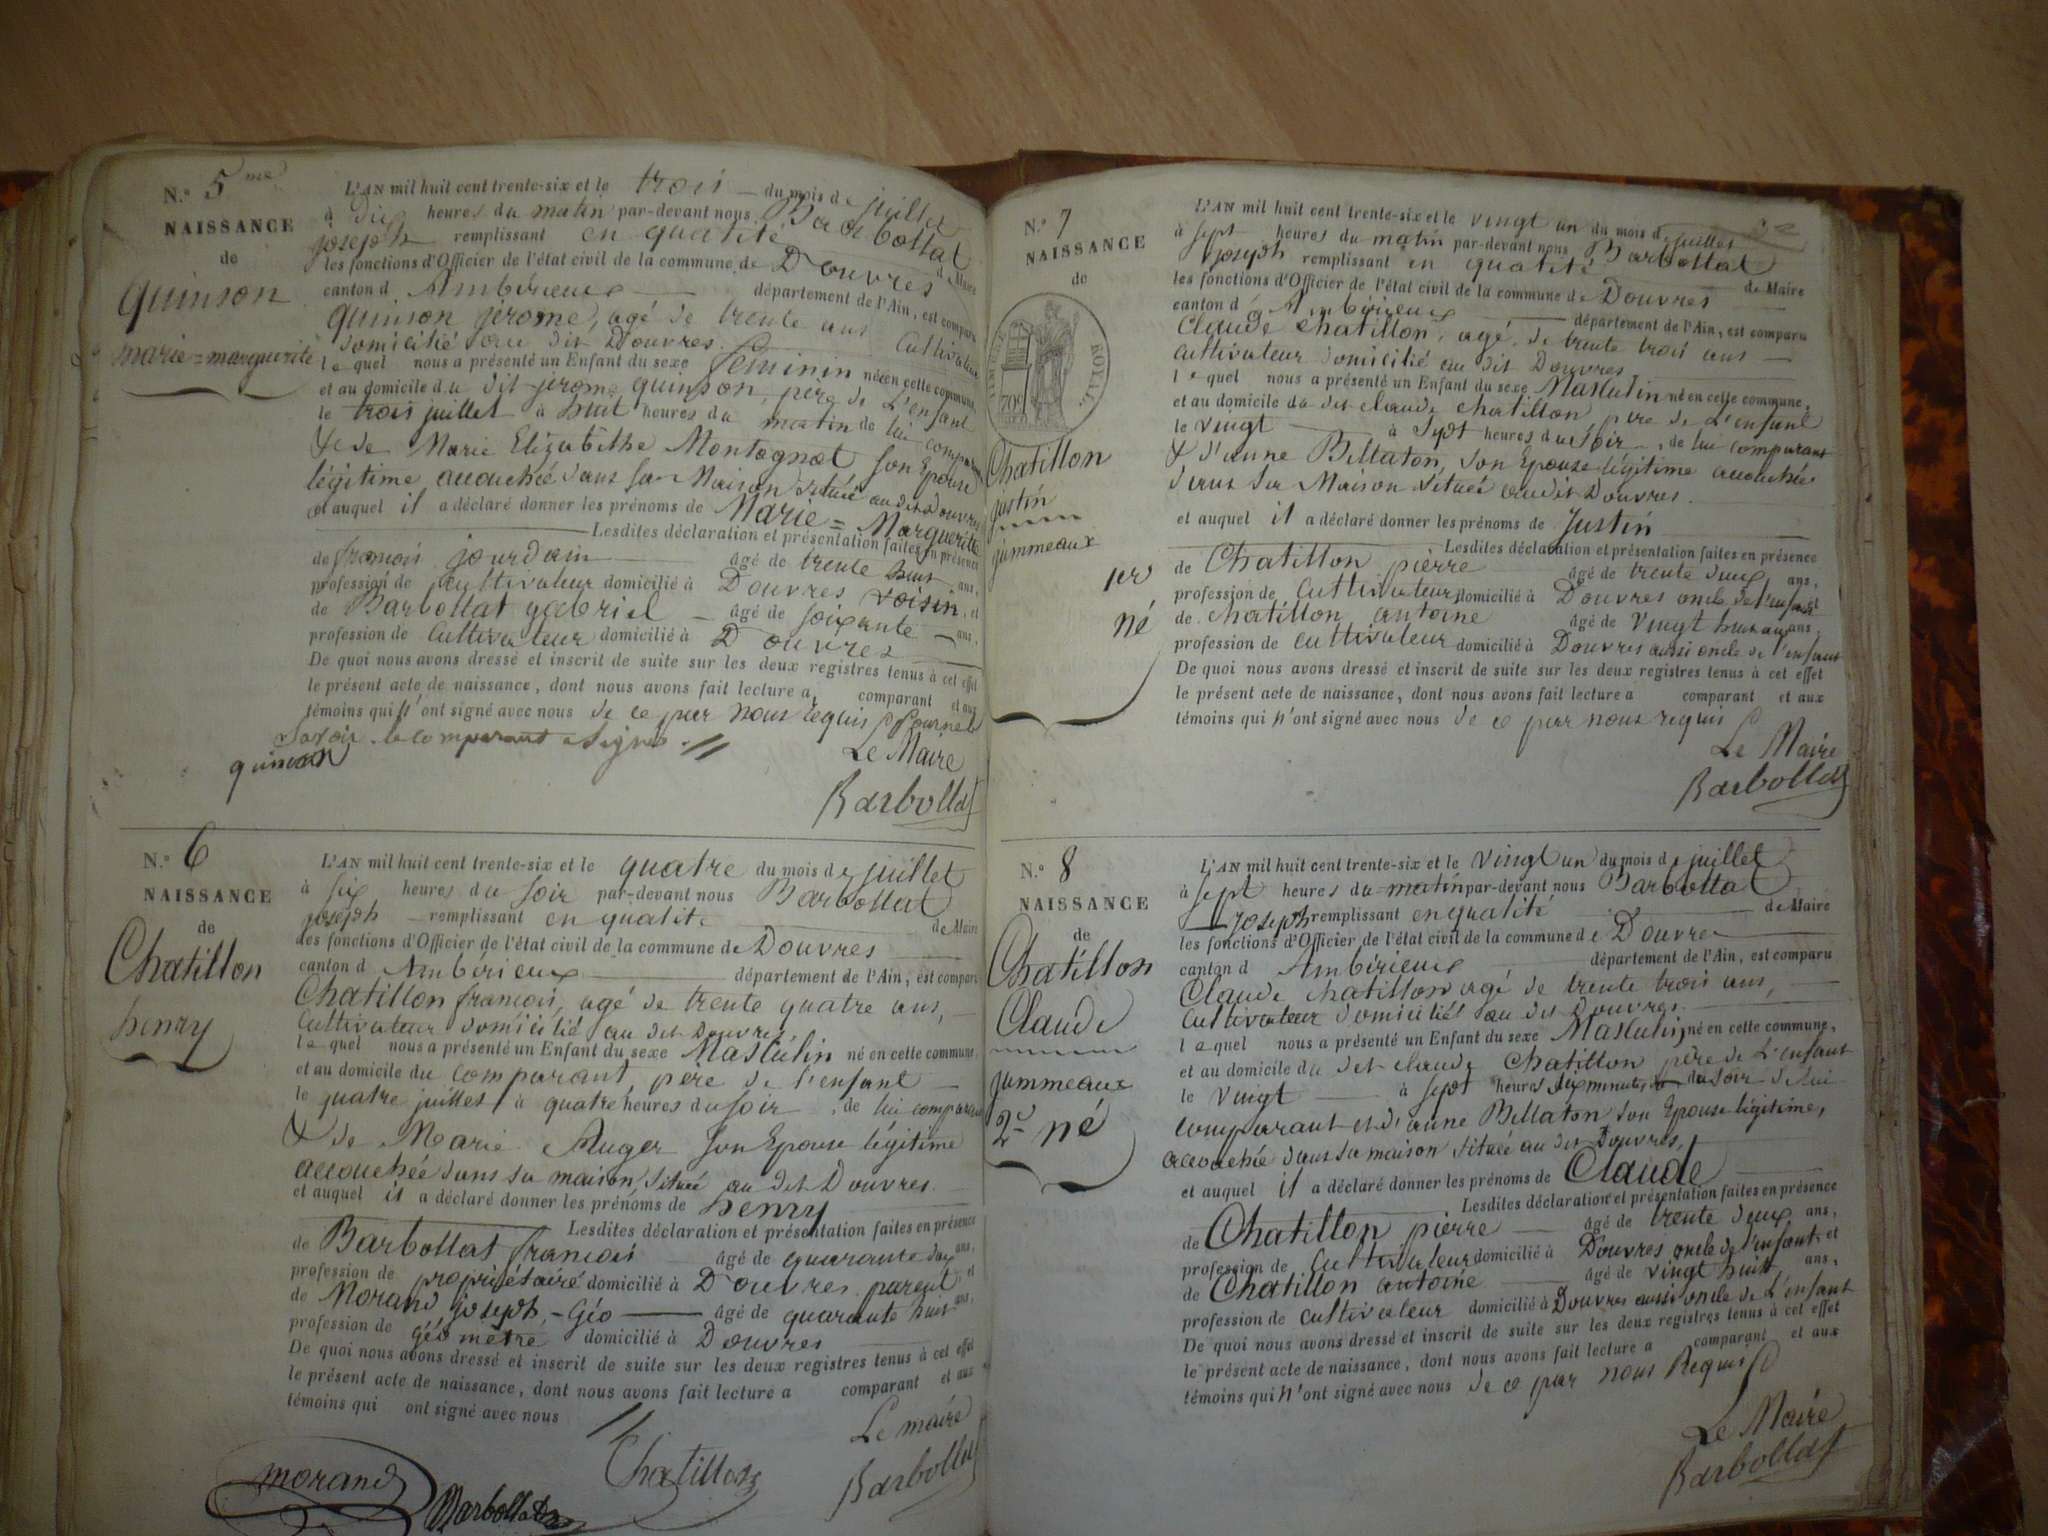 N.° 5 me
NAISSANCE
de
quinson
marie=marguerite
L'AN mil huit cent trente-six et le trois du mois de juillet
à Dix heures du matin par-devant nous Barbollat
joseph remplissant en qualité de Maire
les fonctions d'Officier de l'état civil de la commune de Douvres
canton d'Ambérieux département de l'Ain, est comparu
quinson jerome, agé de trente ans Cultivateur
domicilié au dit Douvres.
lequel nous a présenté un Enfant du sexe féminin né en cette commune,
et au domicile du dit jerome quinson, père de L'enfant
le trois juillet à huit heures du matin de lui comparant
& de Marie Elizabethe Montagnat son Epouse
légitime accouchée dans sa Maison située au dit Douvres
et auquel il a déclaré donner les prénoms de Marie=Marguerite
Lesdites déclaration et présentation faites en présence
de francois jourdain âgé de trente huit ans,
profession de cultivateur domicilié à Douvres voisin, et
de Barbollat gabriel âgé de soixante ans,
profession de Cultivateur domicilié à Douvres
De quoi nous avons dressé et inscrit de suite sur les deux registres tenus à cet effet
le présent acte de naissance, dont nous avons fait lecture a comparant et aux
témoins qui n'ont signé avec nous de ce par nous requis
savoir le comparant a signé
quinson
Le Maire
Barbollat
N.° 6
NAISSANCE
de
Chatillon
henry
L'AN mil huit cent trente-six et le quatre du mois de juillet
à six heures du soir par-devant nous Barbollat
joseph remplissant en qualité de Maire
les fonctions d'Officier de l'état civil de la commune de Douvres
canton d Ambérieux département de l'Ain, est comparu
Chatillon francois, agé de trente quatre ans,
Cultivateur domicilié au dit Douvres.
lequel nous a présenté un Enfant du sexe Masculin né en cette commune,
et au domicile du comparant, père de l'enfant
le quatre juillet à quatre heures du soir, de lui comparant
& de Marie Auger son Epouse légitime
accouchée dans sa maison située au dit Douvres.
et auquel il a déclaré donner les prénoms de henry
Lesdites déclaration et présentation faites en présence
de Barbollat francois âgé de quarante ans,
profession de propriétaire domicilié à Douvres parent, et
de Morand joseph,-Géo âgé de quarante huit ans,
profession de géomètre domicilié à Douvres
De quoi nous avons dressé et inscrit de suite sur les deux registres tenus à cet effet
le présent acte de naissance, dont nous avons fait lecture a comparant et aux
témoins qui ont signé avec nous
Le maire
Chatillon
Barbollat
morand
Barbollat
N.° 7
NAISSANCE
de
TIMBRE ROYAL
70c
Chatillon
justin
jummeaux
1er
né
L'AN mil huit cent trente-six et le vingt un du mois d juillet
à sept heures du matin par-devant nous Barbollat
joseph remplissant en qualité de Maire
les fonctions d'Officier de l'état civil de la commune de Douvres
canton d'Ambérieux département de l'Ain, est comparu
Claude chatillon, agé de trente trois ans
cultivateur domicilié au dit Douvres
lequel nous a présenté un Enfant du sexe Masculin né en cette commune,
et au domicile du dit claude chatillon père de L'enfant
le vingt à sept heures du soir, de lui comparant
& d'anne Billaton, son Epouse légitime accouchée
dans sa Maison située audit Douvres.
et auquel il a déclaré donner les prénoms de Justin
Lesdites déclaration et présentation faites en présence
de Chatillon pierre âgé de trente deux ans,
profession de Cultivateur domicilié à Douvres oncle de l'enfant et
de chatillon antoine âgé de vingt huit ans,
profession de cultivateur domicilié à Douvres aussi oncle de l'enfant
De quoi nous avons dressé et inscrit de suite sur les deux registres tenus à cet effet
le présent acte de naissance, dont nous avons fait lecture a comparant et aux
témoins qui n'ont signé avec nous de ce par nous requis
Le Maire
Barbollat
N.° 8
NAISSANCE
de
Chatillon
Claude
jummeaux
2e né
L'AN mil huit cent trente-six et le vingt un du mois d juillet
à sept heures du matin par-devant nous Barbollat
joseph remplissant en qualité de Maire
les fonctions d'Officier de l'état civil de la commune de Douvres
canton d Ambérieux département de l'Ain, est comparu
Claude chatillon agé de trente trois ans,
Cultivateur domicilié au dit Douvres.
lequel nous a présenté un Enfant du sexe Masculin, né en cette commune,
et au domicile du dit claude Chatillon père de L'enfant
le vingt à sept heures dix minutes du soir de lui
comparant et d'anne Billaton son Epouse légitime,
accouchée dans sa maison située au dit Douvres,
et auquel il a déclaré donner les prénoms de Claude
Lesdites déclaration et présentation faites en présence
de Chatillon pierre âgé de trente deux ans,
profession de cultivateur domicilié à Douvres oncle de l'enfant et
de Chatillon antoine âgé de vingt huit ans,
profession de cultivateur domicilié à Douvres aussi oncle de L'enfant
De quoi nous avons dressé et inscrit de suite sur les deux registres tenus à cet effet
le présent acte de naissance, dont nous avons fait lecture a comparant et aux
témoins qui n'ont signé avec nous de ce par nous Requis
Le Maire
Barbollat